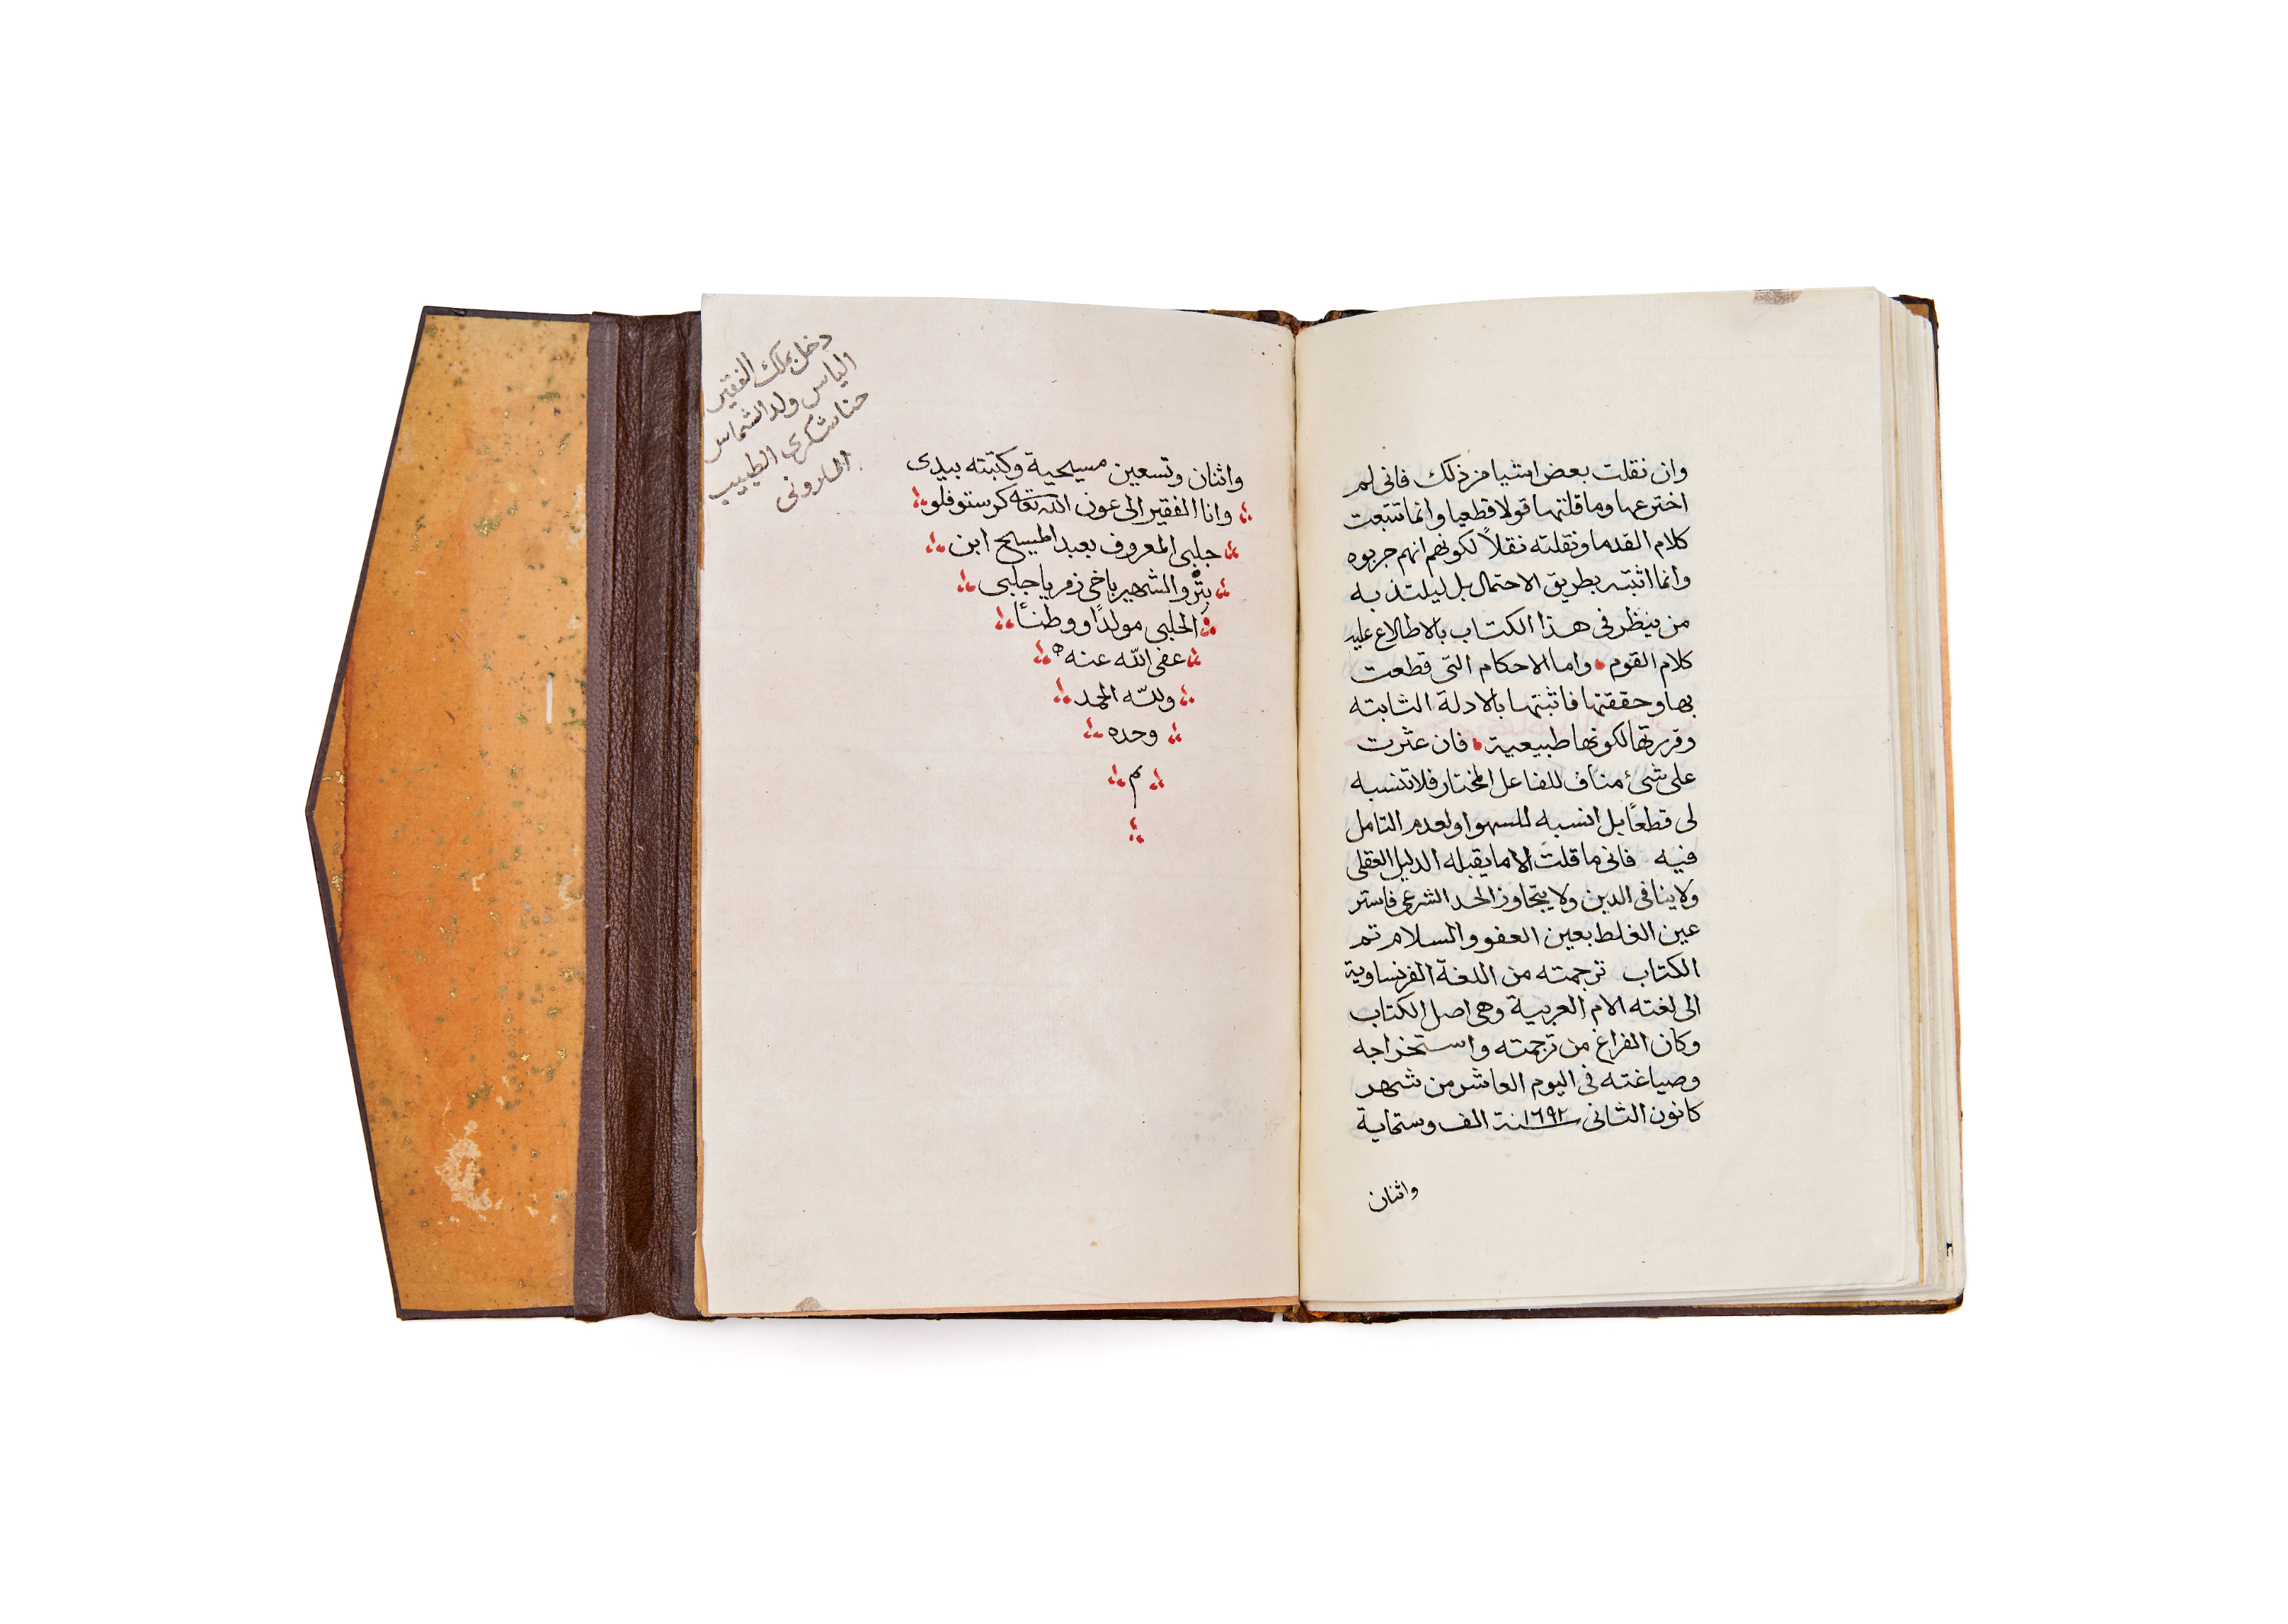 وان نقلت بعض اشيا من ذلك فانى لم
اخترعها وما قلتها قولا قطعيا وانما تتبعت
كلام القدما ونقلته نقلاً لكونهم انهم جربوه
وانما اثبته بطريق الاحتمال بل ليلتذ به
من ينظر فى هذا الكتاب بالاطلاع عليه
كلام القوم • واما الاحكام التى قطعت
بها وحققتها فاثبتها بالادلة الثابته
وقررتها لكونها طبيعية • فان عثرت
على شىء مناف للفاعل المختار فلا تنسبه
لى قطعاً بل انسبه للسهو او لعدم التامل
فيه فانى ما قلت الا ما يقبله الدليل العقلى
ولا ينافى الدين ولا يتجاوز الحد الشرعى فاستر
عين الغلط بعين العفو والسلام تم
الكتاب ترجمته من اللغة الفرنساوية
الى لغته الام العربية وهى اصل الكتاب
وكان الفراغ من ترجمته واستخراجه
وصياغته فى اليوم العاشر من شهر
كانون الثانى سنة ١٦٩٢ الف وستماية
واثنان
واثنان وتسعين مسيحية وكتبته بيدى
وانا الفقير الى عون الله تعه كرستوفلو
جلبى المعروف بعبد المسيح ابن
بترو الشهير باخى زمريا جلبى
الحلبى مولداً ووطنًا
عفى الله عنه
ولله الحمد
وحده
م
دخل بملك الفقير
الياس ولد الشماس
حنا شكرى الطبيب
المارونى